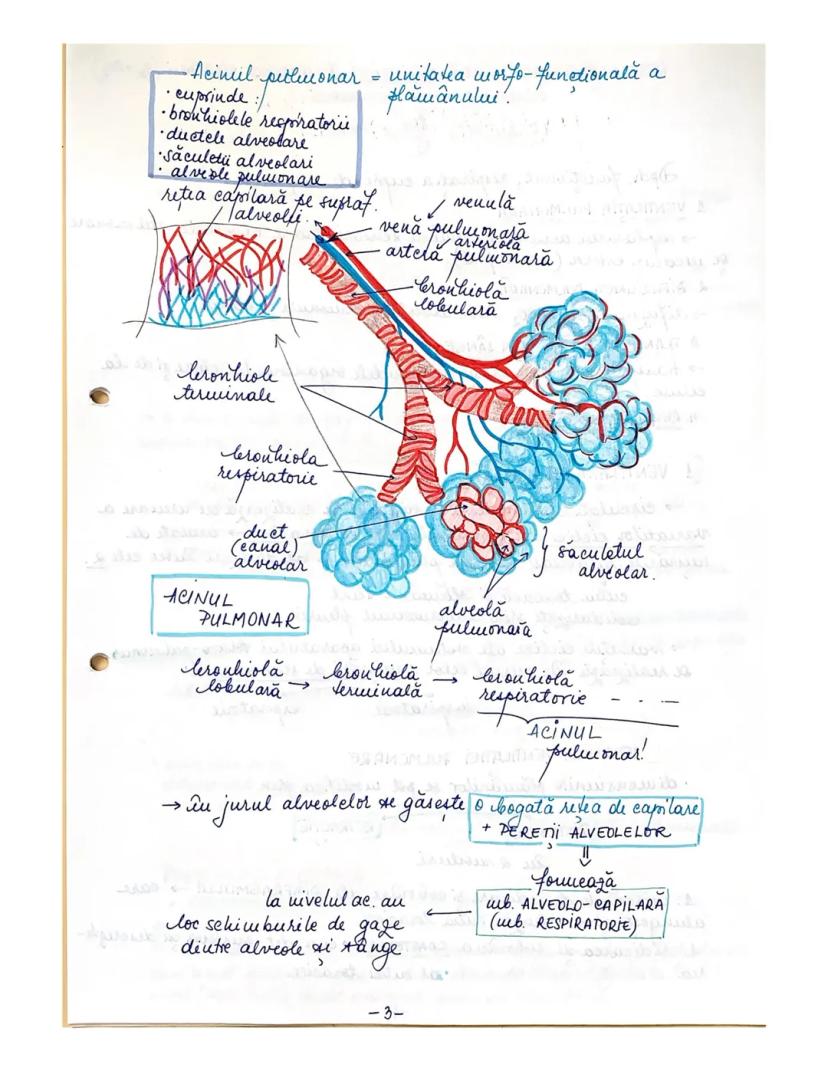 Acinul pulmonar = unitatea morfo-funcțională a
plămânului.
• cuprinde:
• bronhiolele respiratorii
• ductele alveolare
• săculeții alveolari
• alveole pulmonare
rețea capilară pe supraf.
alveolei.
venulă
venă pulmonară
arteriolă
arteră pulmonară
bronhiolă
lobulară
bronhiole
terminale
bronhiola
respiratorie
duct
(canal)
alveolar
saculetul
alveolar.
ACINUL
PULMONAR
alveolă
pulmonară
bronhiolă
lobulară → bronhiolă
terminală → bronhiolă
respiratorie - - - -
ACINUL
pulmonar!
→ În jurul alveolelor se găsește o bogată rețea de capilare
+ PEREȚII ALVEOLELOR
⇓
formează
mb. ALVEOLO-CAPILARĂ
(mb. RESPIRATORIE)
←
la nivelul ac. au
loc schimburile de gaze
dintre alveole și sânge
-3-